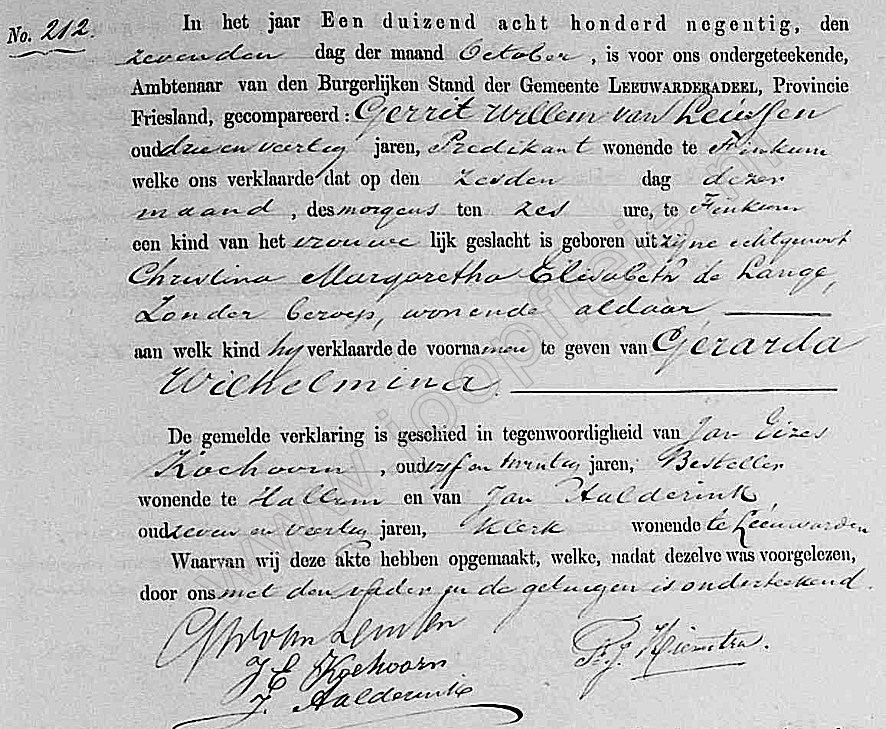 No. 212.
In het jaar Een duizend acht honderd negentig, den
zevenden dag der maand October, is voor ons ondergeteekende,
Ambtenaar van den Burgerlijken Stand der Gemeente LEEUWARDERADEEL, Provincie
Friesland, gecompareerd: Gerrit Willem van Leussen
oud drie en veertig jaren, Predikant wonende te Finkum
welke ons verklaarde dat op den zesden dag dezer
maand, des morgens ten zes ure, te Finkum
een kind van het vrouwelijk geslacht is geboren uit zijne echtgenoot
Christina Margaretha Elisabeth de Lange,
Zonder beroep, wonende aldaar
aan welk kind hij verklaarde de voornamen te geven van Gerarda
Wilhelmina.
De gemelde verklaring is geschied in tegenwoordigheid van Jan Eizes
Koehoorn, oud vijf en twintig jaren, Besteller
wonende te Hallum en van Jan Aalderink
oud zeven en veertig jaren, Klerk wonende te Leeuwarden
Waarvan wij deze akte hebben opgemaakt, welke, nadat dezelve was voorgelezen,
door ons met den vader en de getuigen is onderteekend.
GW van Leussen
J E Koehoorn
J. Aalderink
Hiemstra.